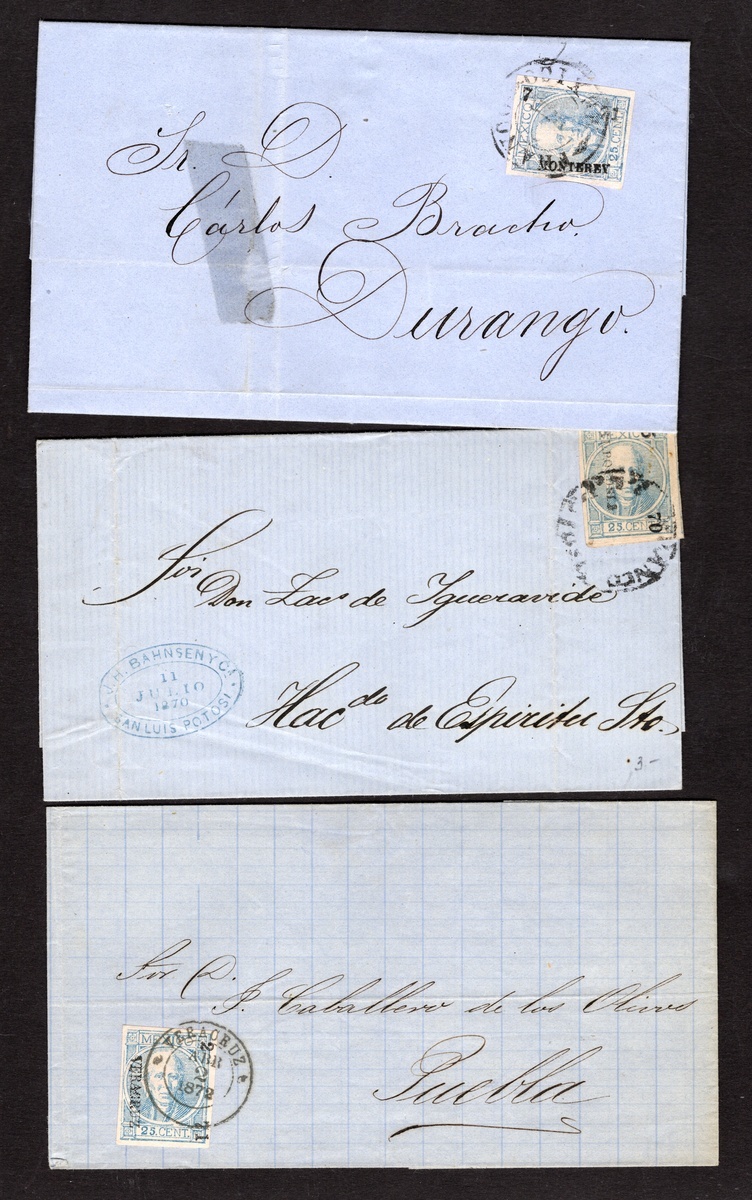 MEXICO
7
25 CENT
MONTEREY
Sr. D.
Cárlos Bracho.
Durango.
MEXICO
25 CEN
70
FRANCO
Sor
Don Zacs de Ygueravide
J. H. BAHNSEN Y CA.
11
JULIO
1870
SAN LUIS POTOSI
Hacdo de Espiritu Sto.
3.-
Sor D.
J. Caballero de los Olivos
Puebla
MEXICO
VERACRUZ
25 CENT.
VERACRUZ
2
ABR
1872